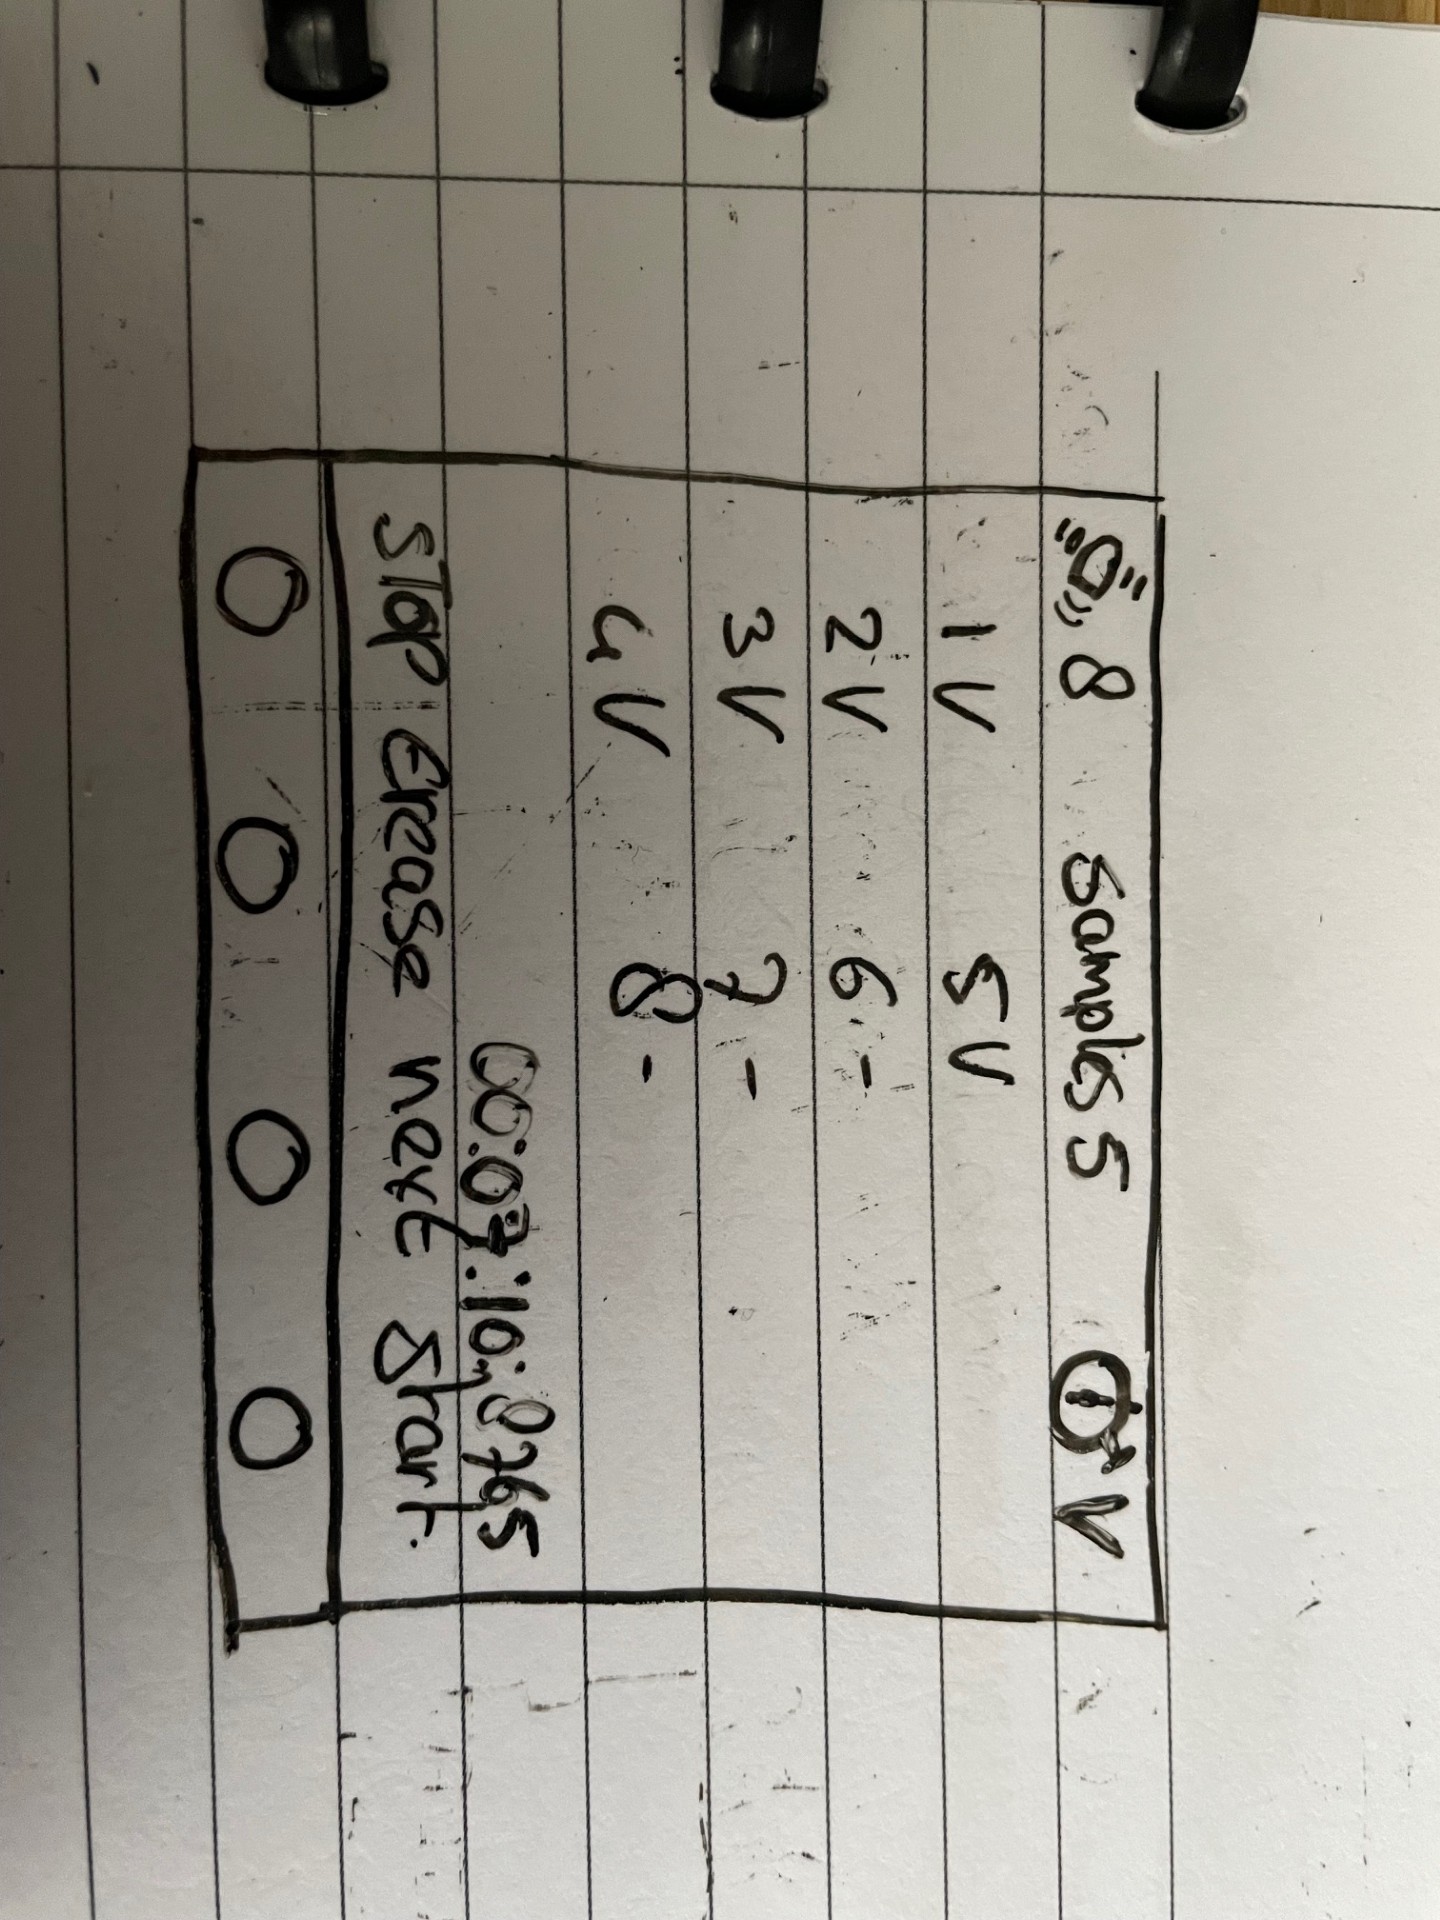 8 samples 5 V
1 V 5 V
2 V 6 -
3 V 7 -
4 V 8 -
00:07:10:8765
STOP Erease next start.